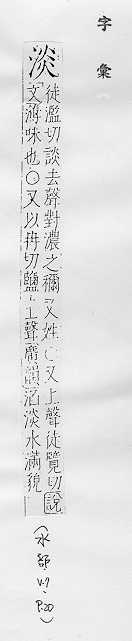 字彙
淡
徒濫切談去聲對濃之稱又姓○又上聲徒覽切說
文薄味也○又以冉切鹽上聲廣韻㴸淡水滿貌
(水部 V.9. P.20)